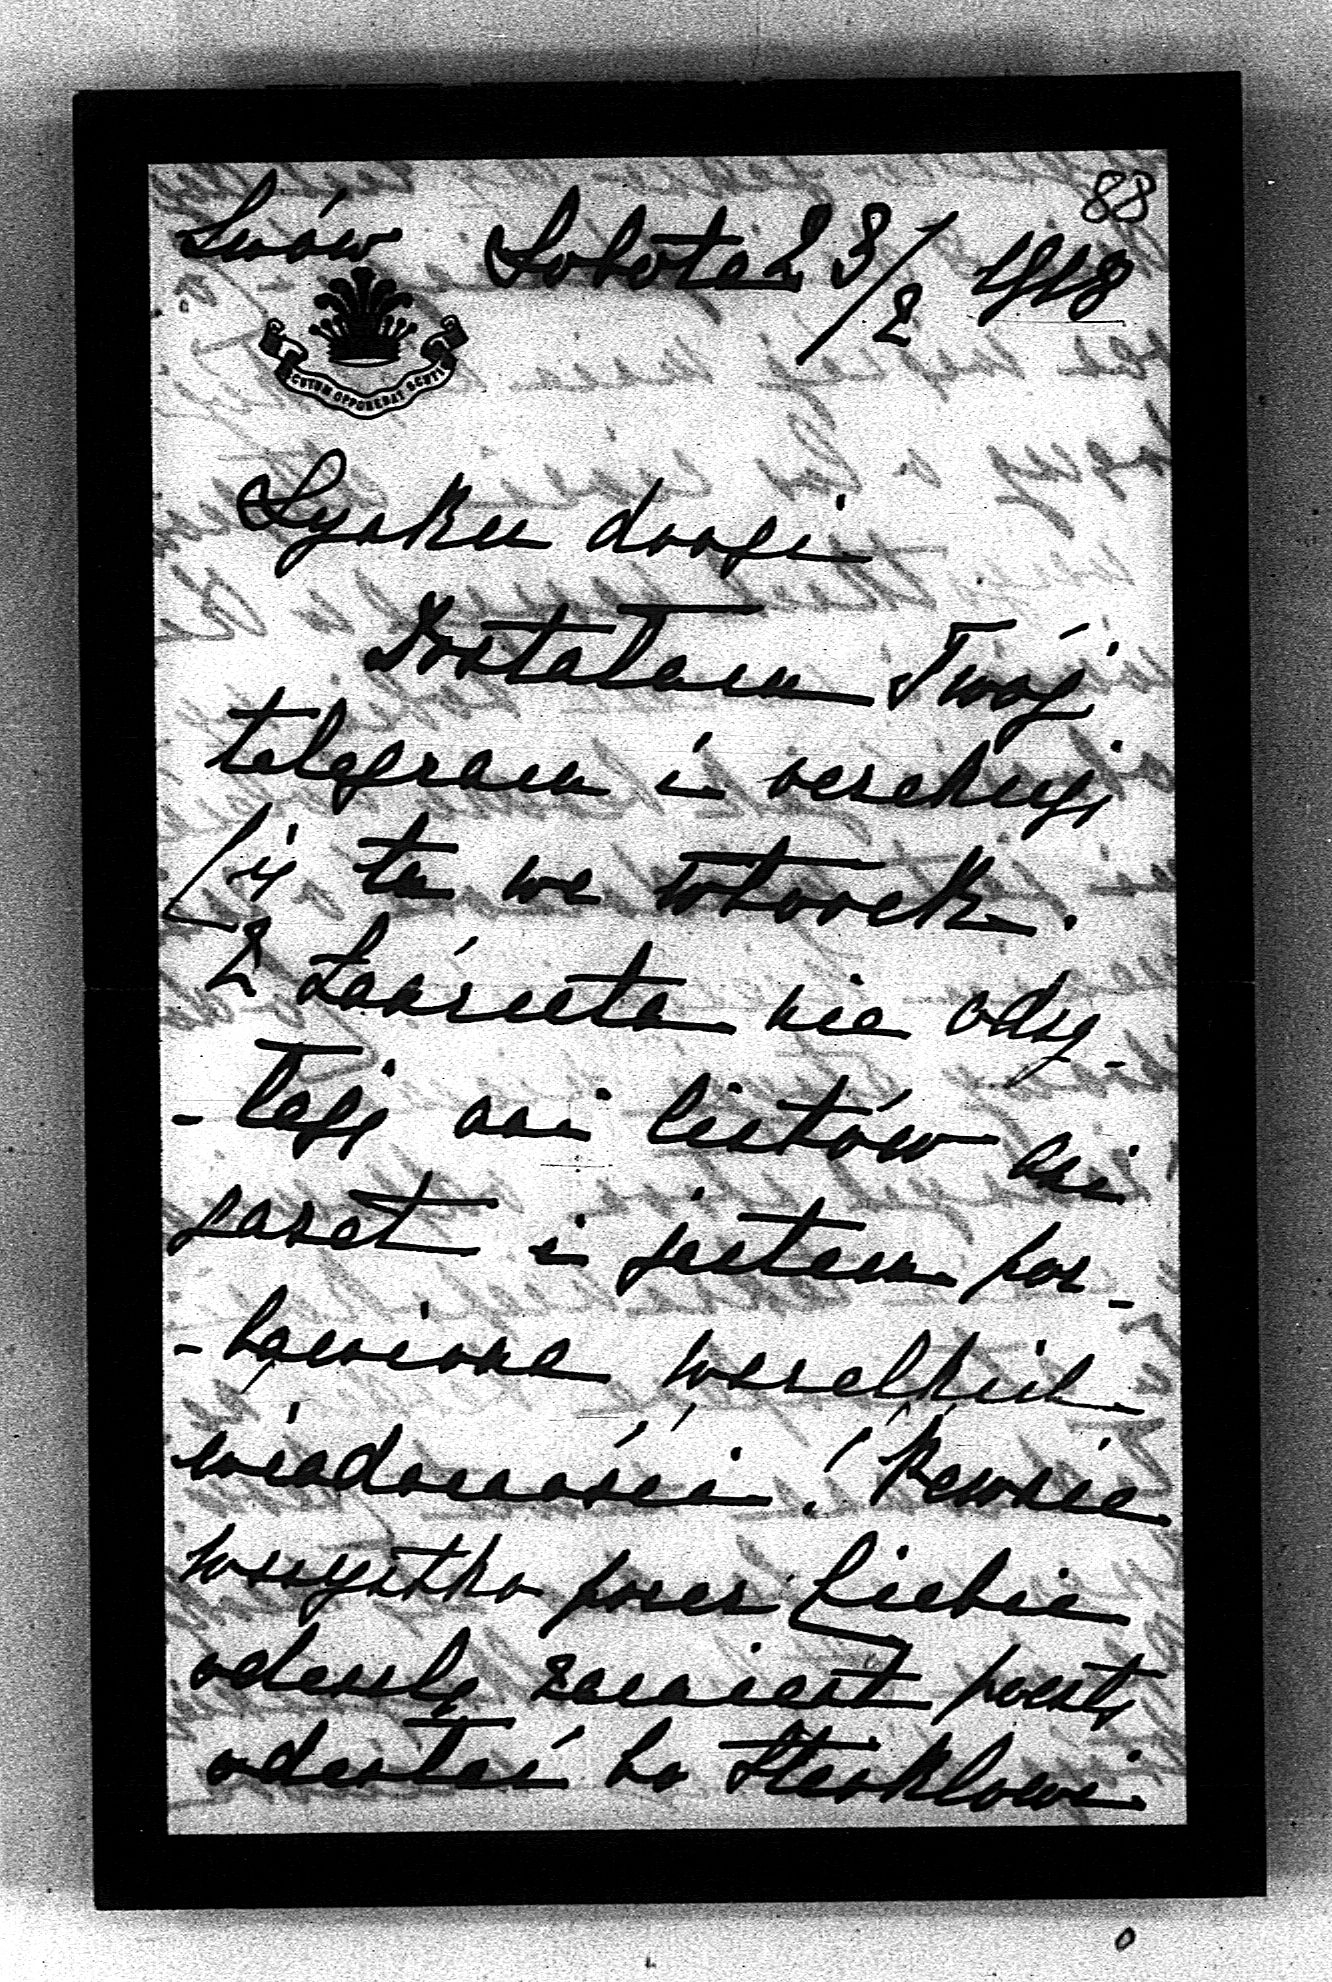 88
Lwów Sobota 23/2 1918
SCUTUM OPPONEBAT SCUTIS
Synku drogi
Dostałam Twój
telegram i oczekuję
Cię tu we wtorek.
Z Łańcuta nie odsy-
- łają ani listów ani
gazet i jestem poz-
- bawiona wszelkich
wiadomości! Pewnie
wszystko przez Ciebie
odeszlę zamiast pocztą
odesłać bo